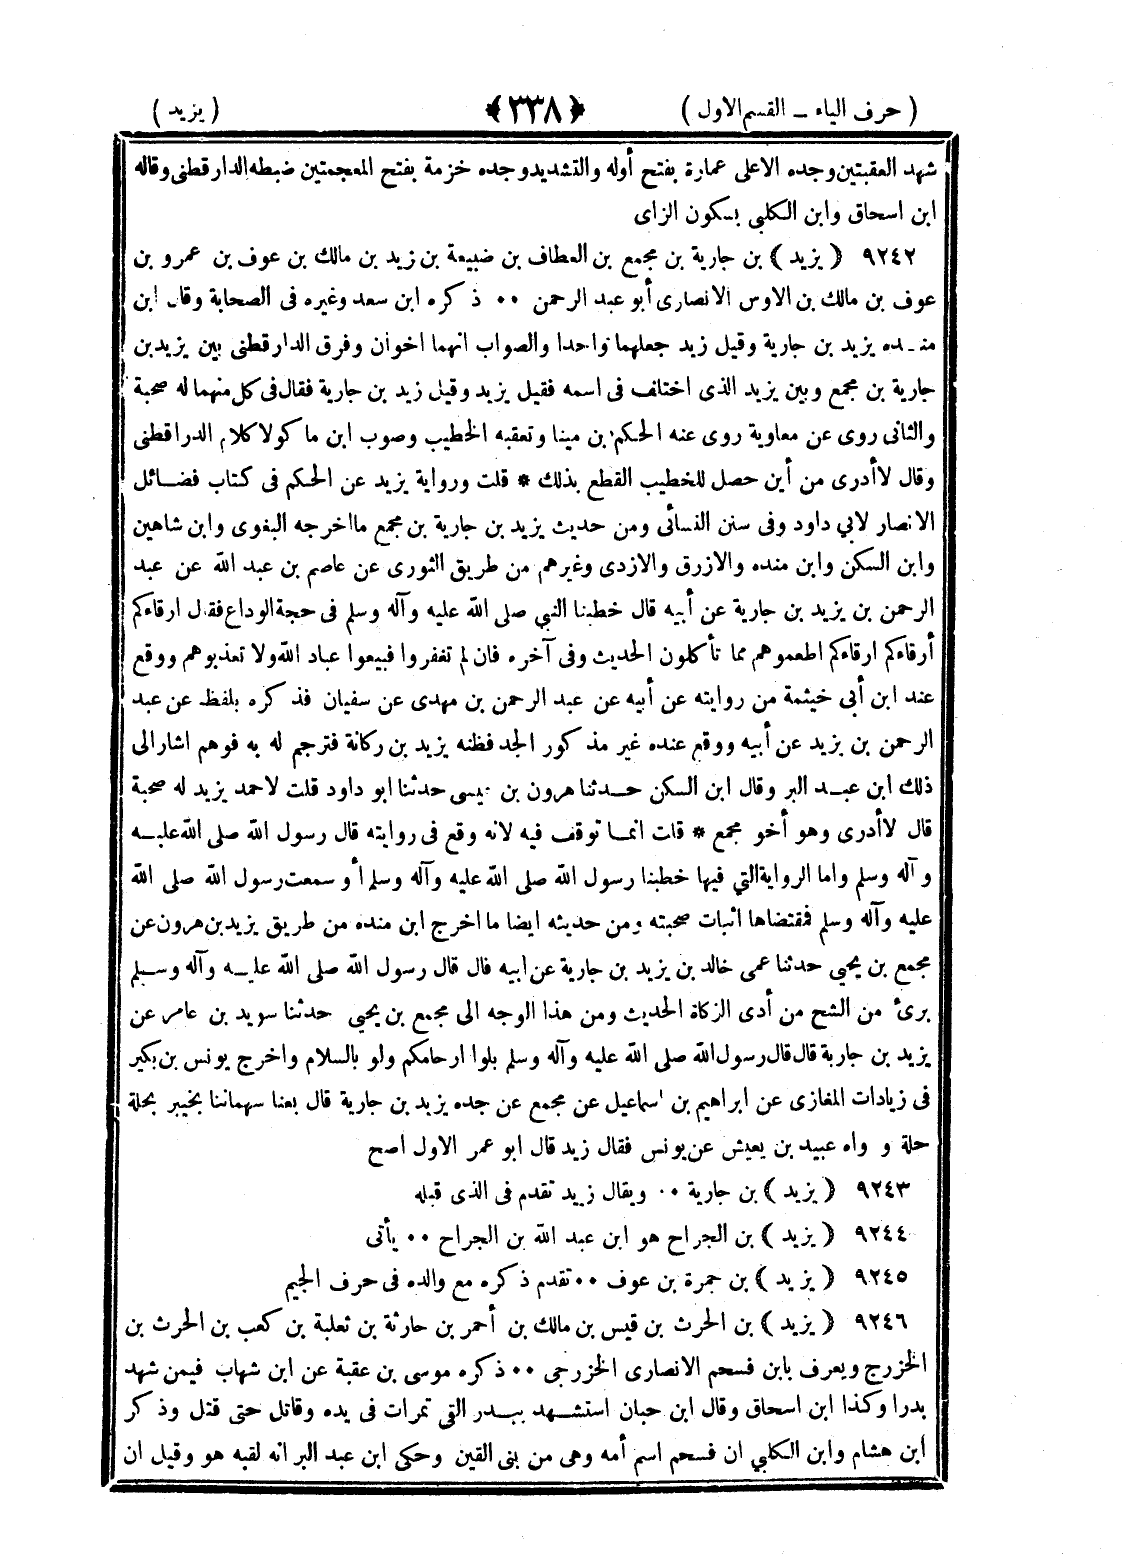 ( حرف الياء ـ القسم الاول ) ﴿ ٣٣٨ ﴾ ( يزيد )
شهد العقبتين وجده الاعلى عمارة بفتح أوله والتشديد وجده خزمة بفتح المعجمتين ضبطه الدارقطنى وقاله
ابن اسحاق وابن الكلبي بسكون الزاى
٩٢٤٢ ( يزيد ) بن جارية بن مجمع بن العطاف بن ضبيعة بن زيد بن مالك بن عوف بن عمرو بن
عوف بن مالك بن الاوس الانصارى أبو عبد الرحمن ٠٠ ذكره ابن سعد وغيره فى الصحابة وقال ابن
منده يزيد بن جارية وقيل زيد جعلهما واحدا والصواب انهما اخوان وفرق الدارقطنى بين يزيد بن
جارية بن مجمع وبين يزيد الذى اختلف فى اسمه فقيل يزيد وقيل زيد بن جارية فقال فى كل منهما له صحبة
والثانى روى عن معاوية روى عنه الحكم بن مينا وتعقبه الخطيب وصوب ابن ماكولا كلام الدراقطنى
وقال لاأدرى من أين حصل للخطيب القطع بذلك * قلت ورواية يزيد عن الحكم فى كتاب فضائل
الانصار لابي داود وفى سنن النسائى ومن حديث يزيد بن جارية بن مجمع مااخرجه البغوى وابن شاهين
وابن السكن وابن منده والازرق والازدى وغيرهم من طريق الثورى عن عاصم بن عبد الله عن عبد
الرحمن بن يزيد بن جارية عن أبيه قال خطبنا النبي صلى الله عليه وآله وسلم فى حجة الوداع فقال ارقاءكم
أرقاءكم ارقاءكم اطعموهم مما تأكلون الحديث وفى آخره فان لم تغفروا فبيعوا عباد الله ولا تعذبوهم ووقع
عند ابن أبي خيثمة من روايته عن أبيه عن عبد الرحمن بن مهدى عن سفيان فذكره بلفظ عن عبد
الرحمن بن يزيد عن أبيه ووقع عنده غير مذكور الجد فظنه يزيد بن ركانة فترجم له به فوهم اشار الى
ذلك ابن عبد البر وقال ابن السكن حدثنا هرون بن عيسى حدثنا ابو داود قلت لاحمد يزيد له صحبة
قال لاأدرى وهو أخو مجمع * قلت انما توقف فيه لانه وقع فى روايته قال رسول الله صلى الله عليه
وآله وسلم واما الرواية التي فيها خطبنا رسول الله صلى الله عليه وآله وسلم أو سمعت رسول الله صلى الله
عليه وآله وسلم فمقتضاها اثبات صحبته ومن حديثه ايضا ما اخرج ابن منده من طريق يزيد بن هرون عن
مجمع بن يحيي حدثنا عمى خالد بن يزيد بن جارية عن ابيه قال قال رسول الله صلى الله عليه وآله وسلم
برئ من الشح من أدى الزكاة الحديث ومن هذا الوجه الى مجمع بن يحيي حدثنا سويد بن عامر عن
يزيد بن جارية قال قال رسول الله صلى الله عليه وآله وسلم بلوا ارحامكم ولو بالسلام واخرج يونس بن بكير
فى زيادات المغازى عن ابراهيم بن اسماعيل عن مجمع عن جده يزيد بن جارية قال بعنا سهماننا بخيبر بحلة
حلة و واه عبيد بن يعيش عن يونس فقال زيد قال ابو عمر الاول اصح
٩٢٤٣ ( يزيد ) بن جارية ٠٠ ويقال زييد تقدم فى الذى قبله
٩٢٤٤ ( يزيد ) بن الجراح هو ابن عبد الله بن الجراح ٠٠ يأتى
٩٢٤٥ ( يزيد ) بن جمرة بن عوف ٠٠ تقدم ذكره مع والده فى حرف الجيم
٩٢٤٦ ( يزيد ) بن الحرث بن قيس بن مالك بن أحمر بن حارثة بن ثعلبة بن كعب بن الحرث بن
الخزرج ويعرف بابن فسحم الانصارى الخزرجى ٠٠ ذكره موسى بن عقبة عن ابن شهاب فيمن شهد
بدرا وكذا ابن اسحاق وقال ابن حبان استشهد ببدر التى تمرات فى يده وقاتل حتى قتل وذكر
ابن هشام وابن الكلبي ان فسحم اسم أمه وهى من بنى القين وحكى ابن عبد البر انه لقبه هو وقيل ان